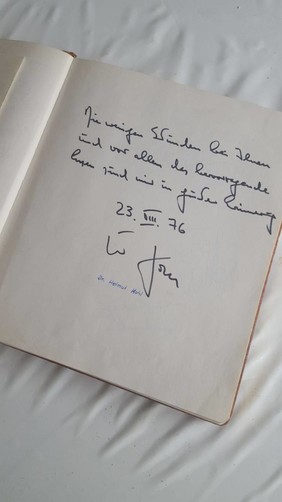 Die wenigen Stunden bei Ihnen
und vor allen das hervorragende
Essen sind mir in guter Erinnerung
23. VIII. 76
Dr. Helmut